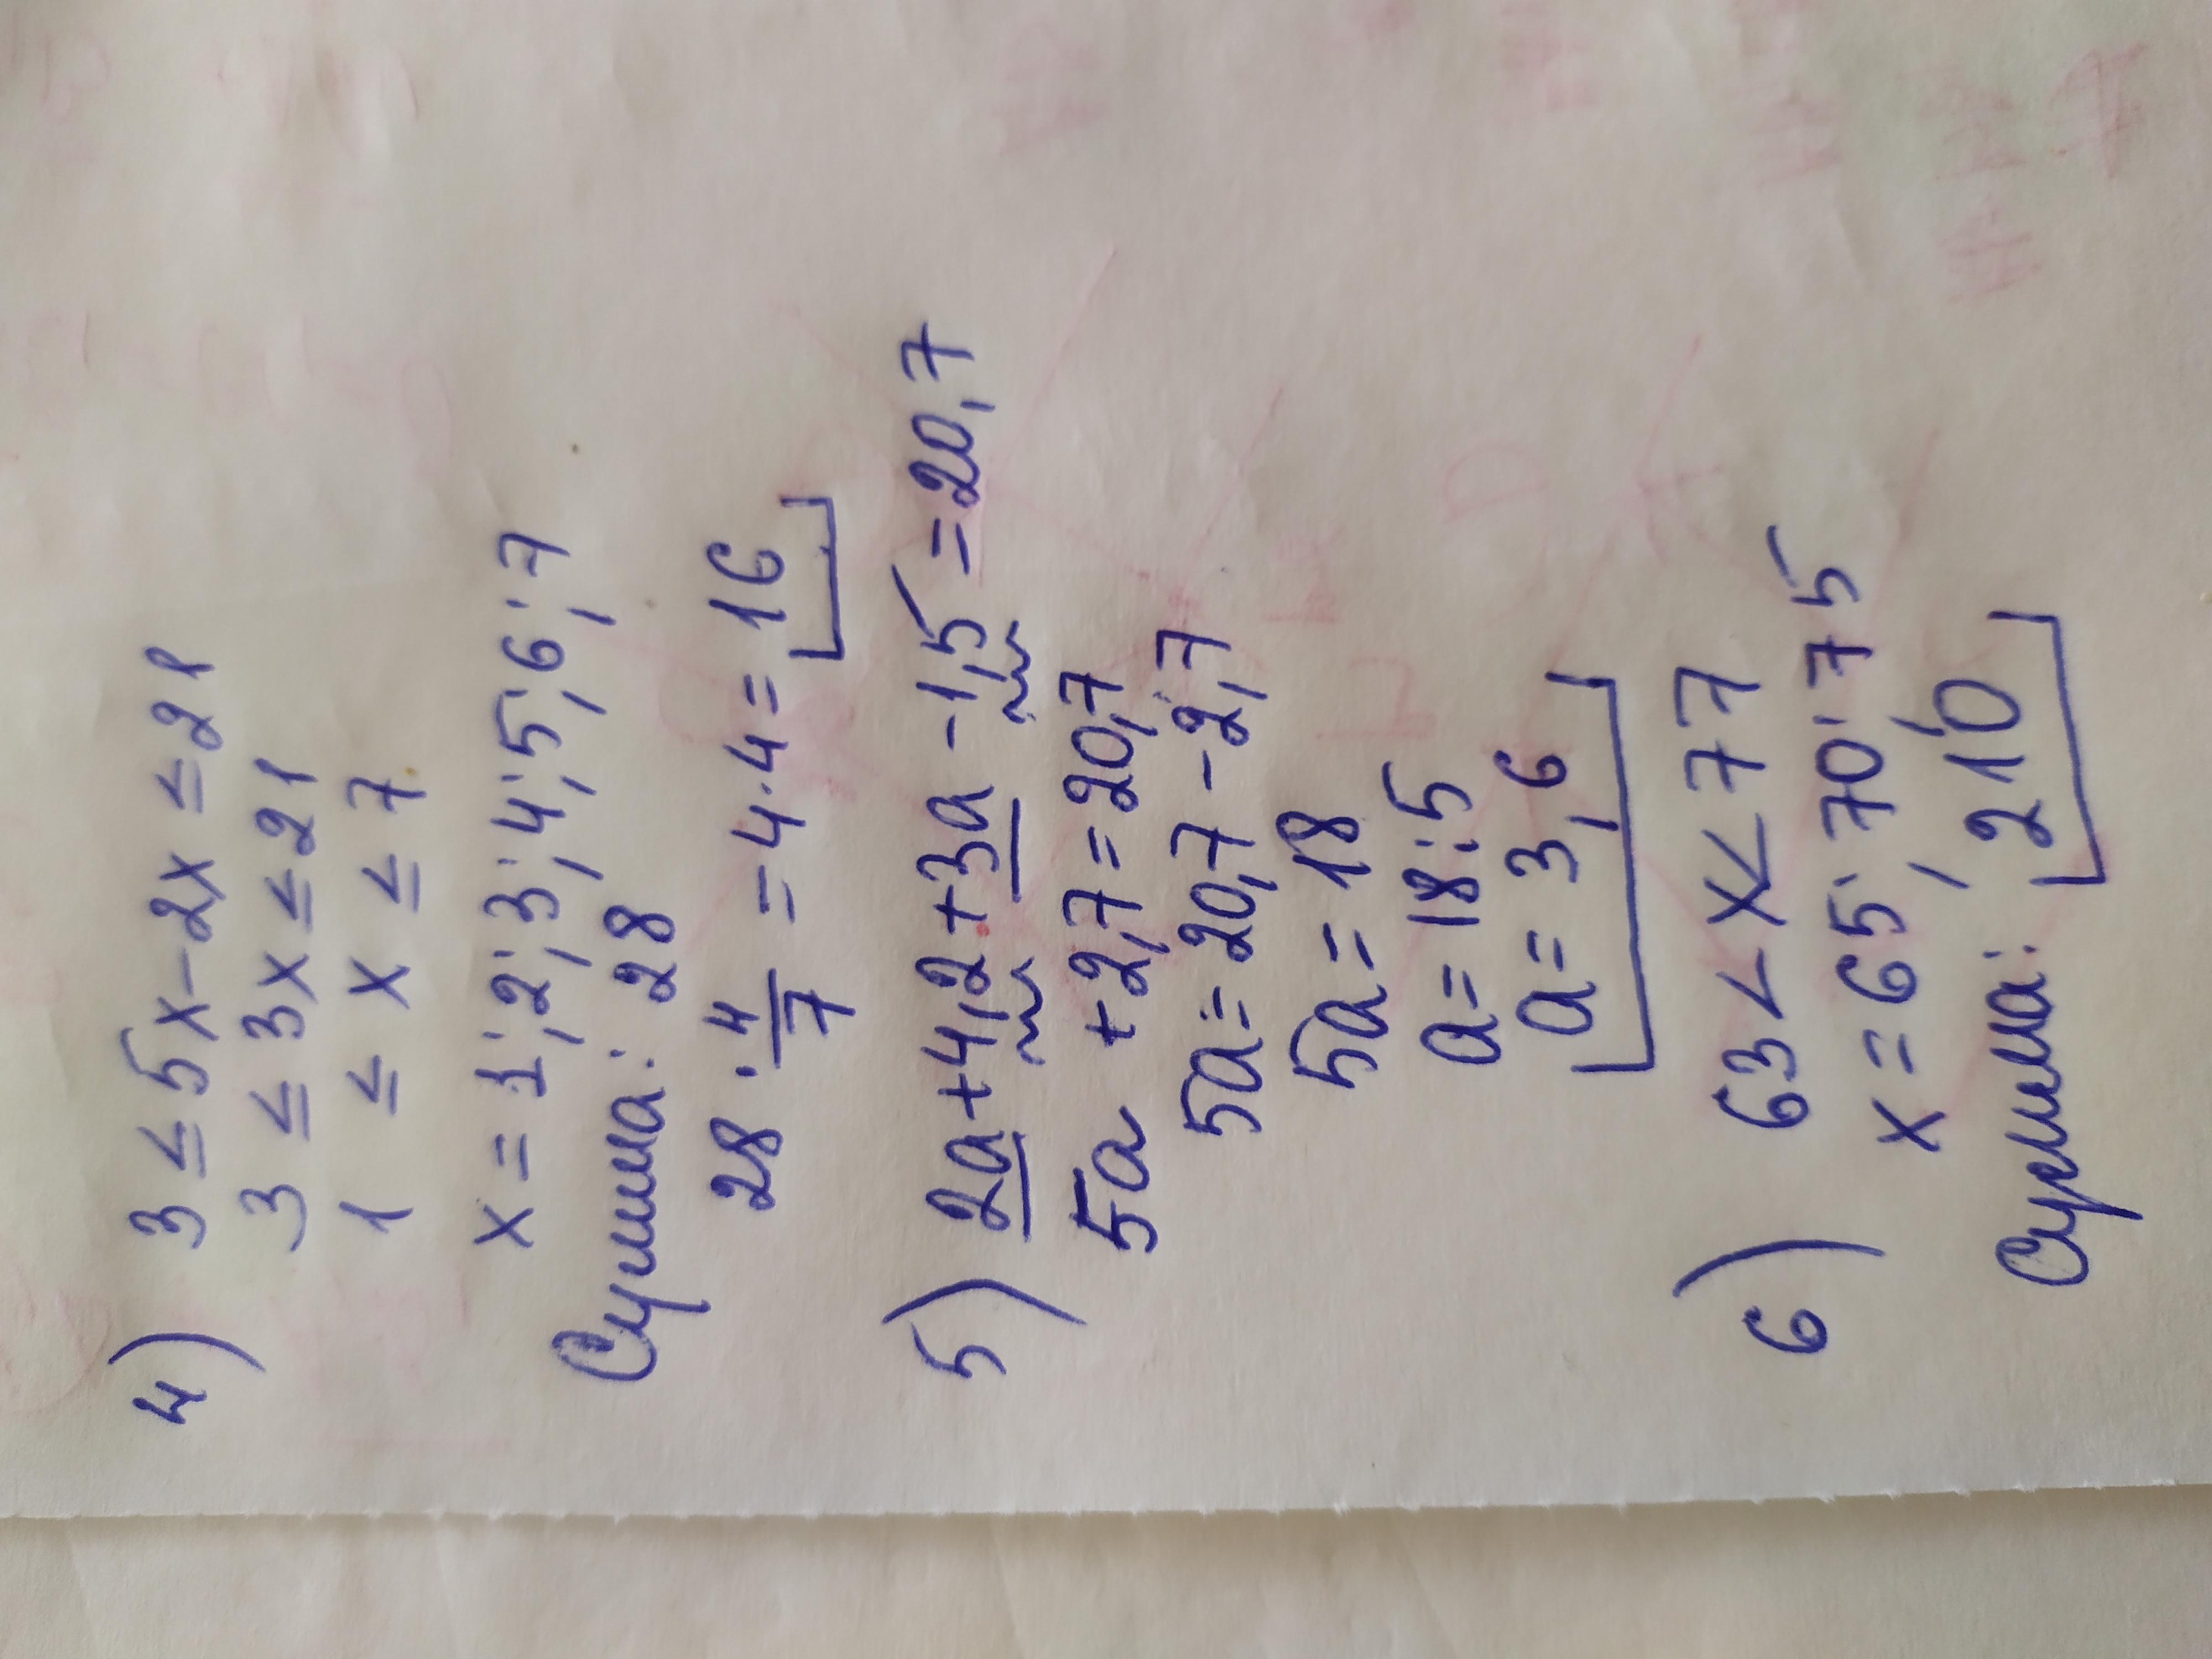 4) 3 ≤ 5x-2x ≤ 21
3 ≤ 3x ≤ 21
1 ≤ x ≤ 7
x = 1; 2; 3; 4; 5; 6; 7
Сумма: 28
28 · 4/7 = 4·4 = 16
5) 2a+4,2+3a-1,5=20,7
5a +2,7=20,7
5a=20,7-2,7
5a=18
a=18:5
a=3,6
6) 63<x<77
x=65; 70; 75
Сумма: 210